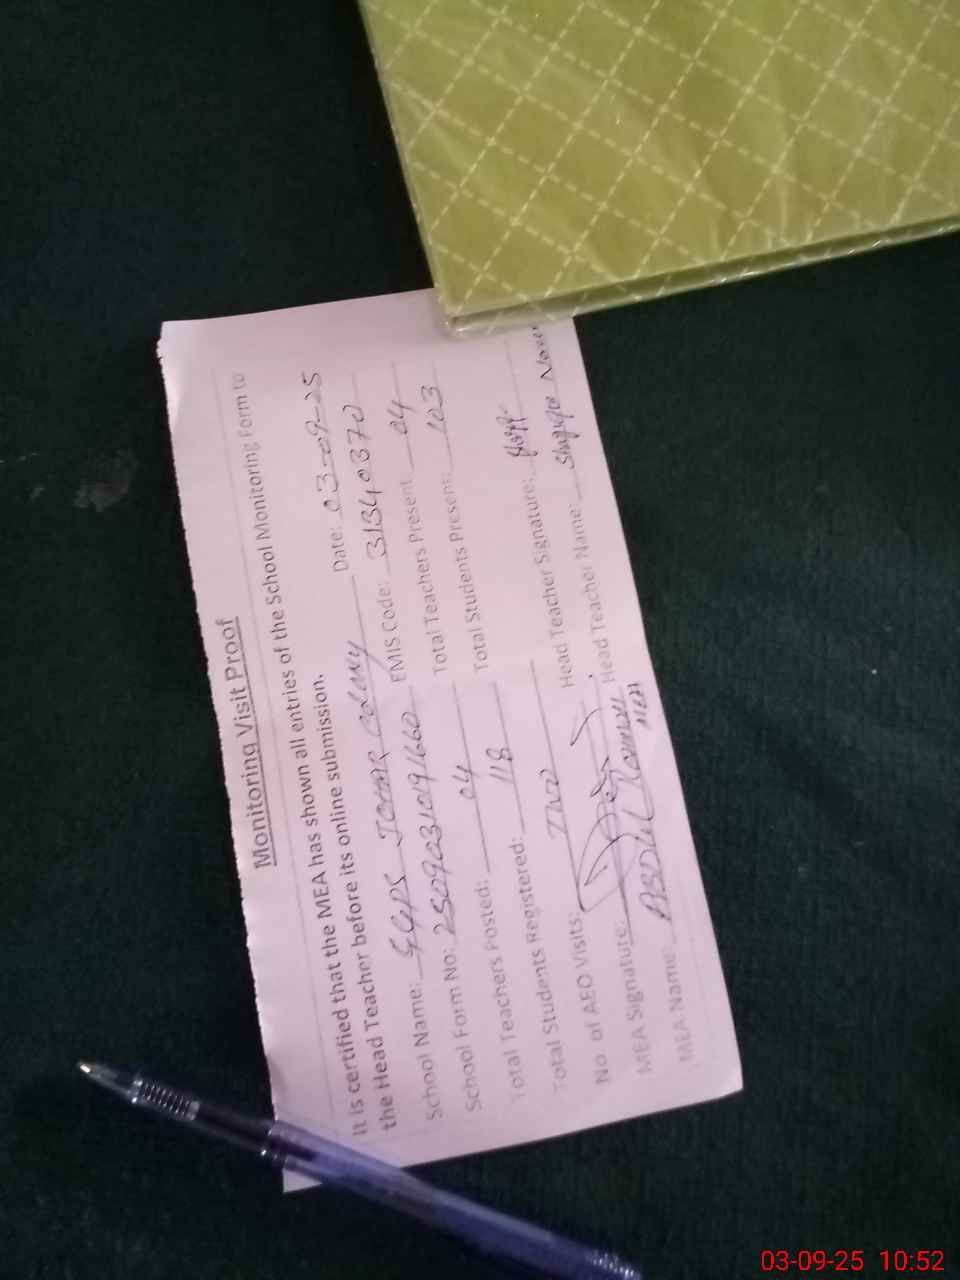 Monitoring Visit Proof
It is certified that the MEA has shown all entries of the School Monitoring Form to
the Head Teacher before its online submission.
School Name: GGPS JOHAR COLONY Date: 03-09-25
School Form No: 25090310191660 EMIS Code: 31340370
Total Teachers Posted: 04 Total Teachers Present 04
Total Students Registered: 118 Total Students Present: 103
No. of AEO Visits: Two Head Teacher Signature:
MEA Signature: Head Teacher Name:
MEA Name: ABDUL MEA
03-09-25 10:52